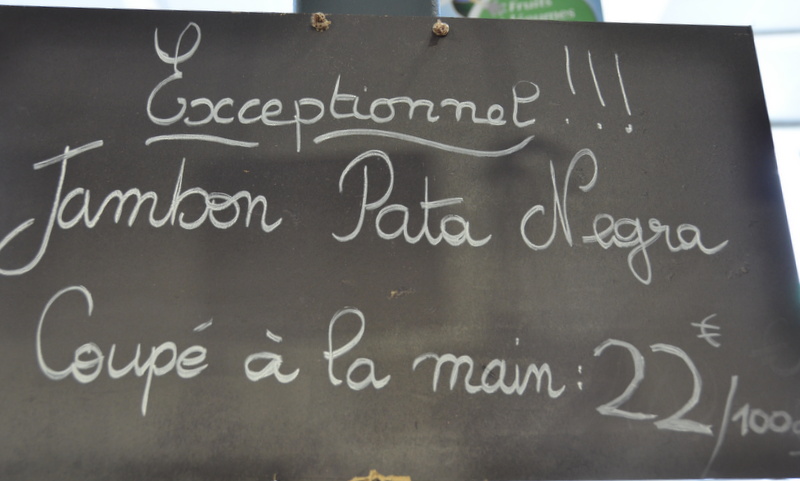 Fruits
Légumes
Exceptionnel !!!
Jambon Pata Negra
Coupé à la main : 22€/100g